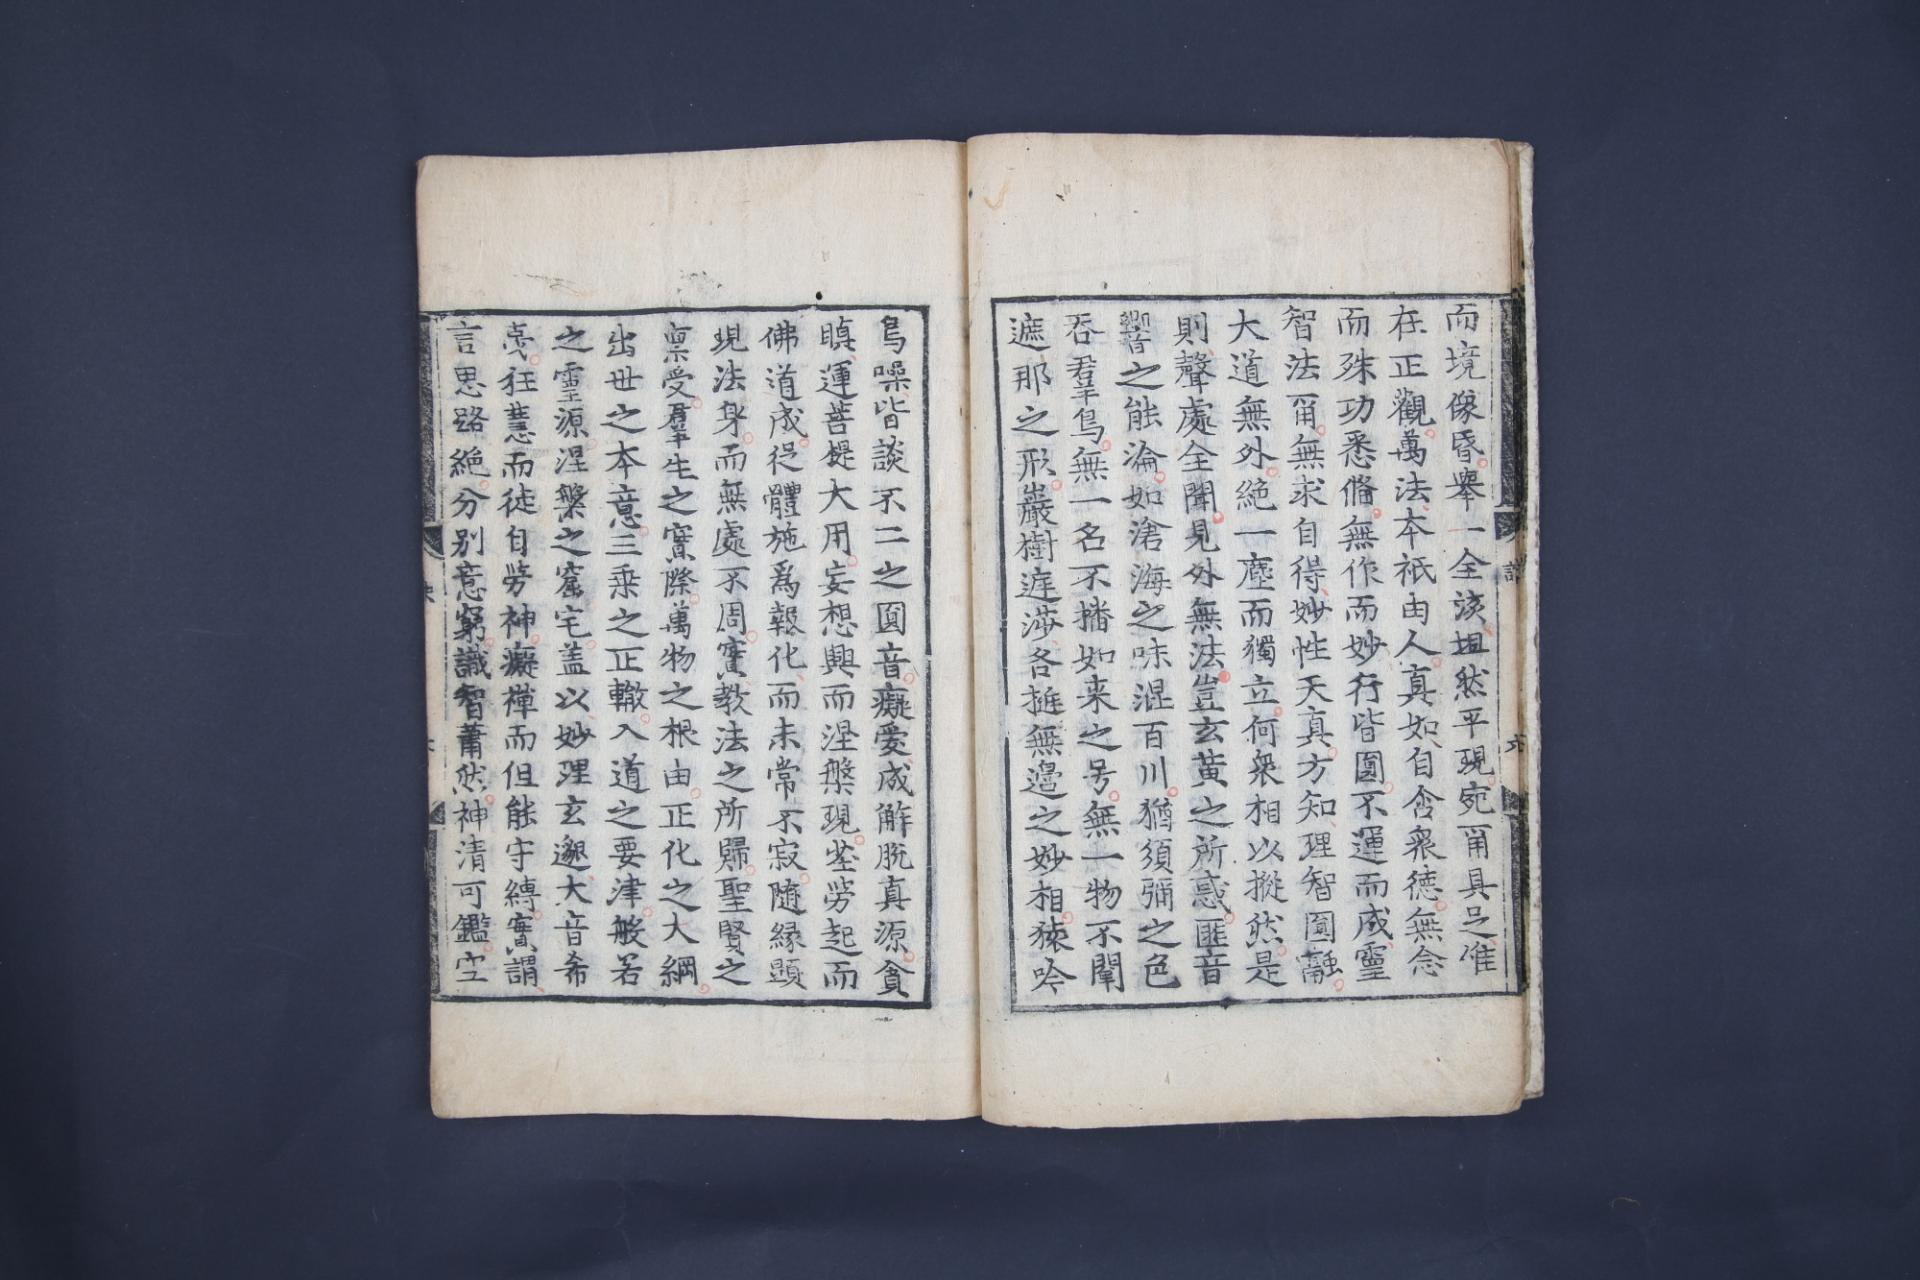 而境像昏舉一全該坦然平現宛爾具足唯
在正觀萬法本祇由人真如自含衆德無念
而殊功悉備無作而妙行皆圓不運而成靈
智法爾無求自得妙性天真方知理智圓融
大道無外絶一塵而獨立何衆相以摐然是
則聲處全聞見外無法豈玄黃之所惑匪音
響之能淪如滄海之味混百川猶須彌之色
吞羣鳥無一名不播如来之号無一物不闡
遮那之形巖樹庭莎各挺無邊之妙相猿吟
鳥噪皆談不二之圓音癡愛成解脱真源貪
瞋運菩提大用妄想興而涅槃現塵勞起而
佛道成從體施爲報化而未常不寂隨緣顯
現法身而無處不周實教法之所歸聖賢之
稟受羣生之實際萬物之根由正化之大綱
出世之本意三乘之正轍入道之要津般若
之靈源涅槃之窟宅盖以妙理玄邈大音希
狂慧而徒自勞神癡禪而但能守縛實謂
言思路絶分別意窮識智蕭然神清可鑑空
訣
六